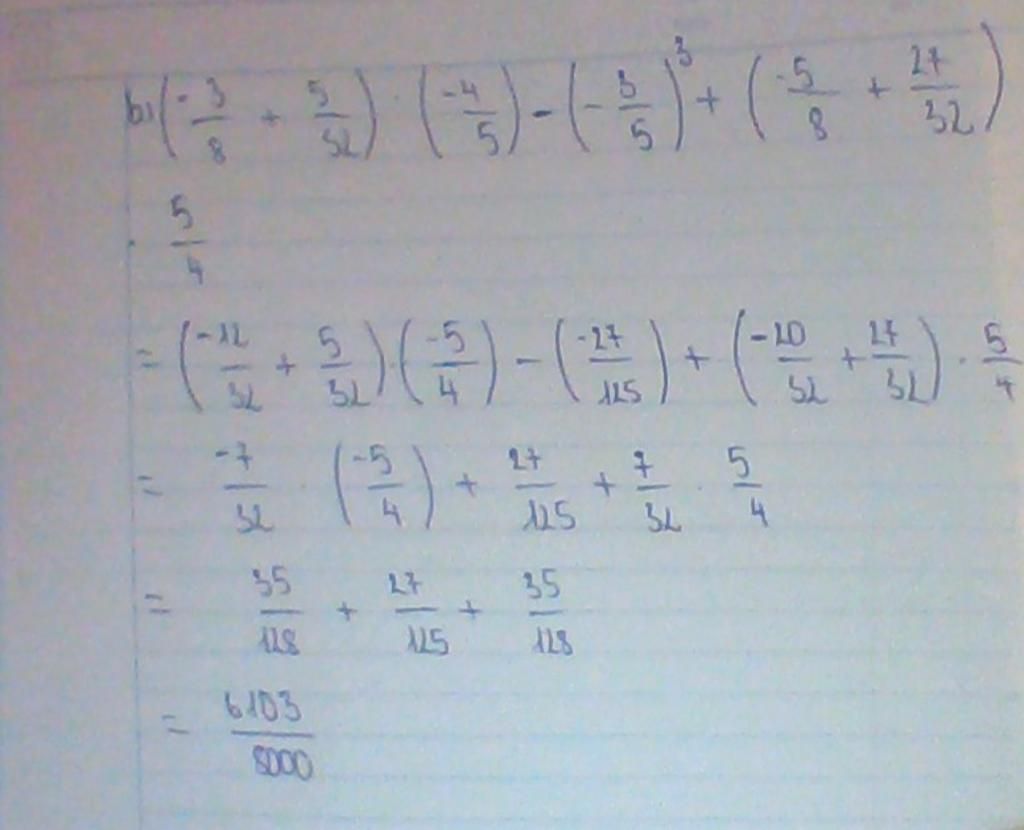 b) (-3/8 + 5/32) · (-4/5) - (-3/5)³ + (-5/8 + 27/32)
· 5/4
= (-12/32 + 5/32) · (-5/4) - (-27/125) + (-20/32 + 27/32) · 5/4
= -7/32 (-5/4) + 27/125 + 7/32 · 5/4
= 35/128 + 27/125 + 35/128
= 6103/8000